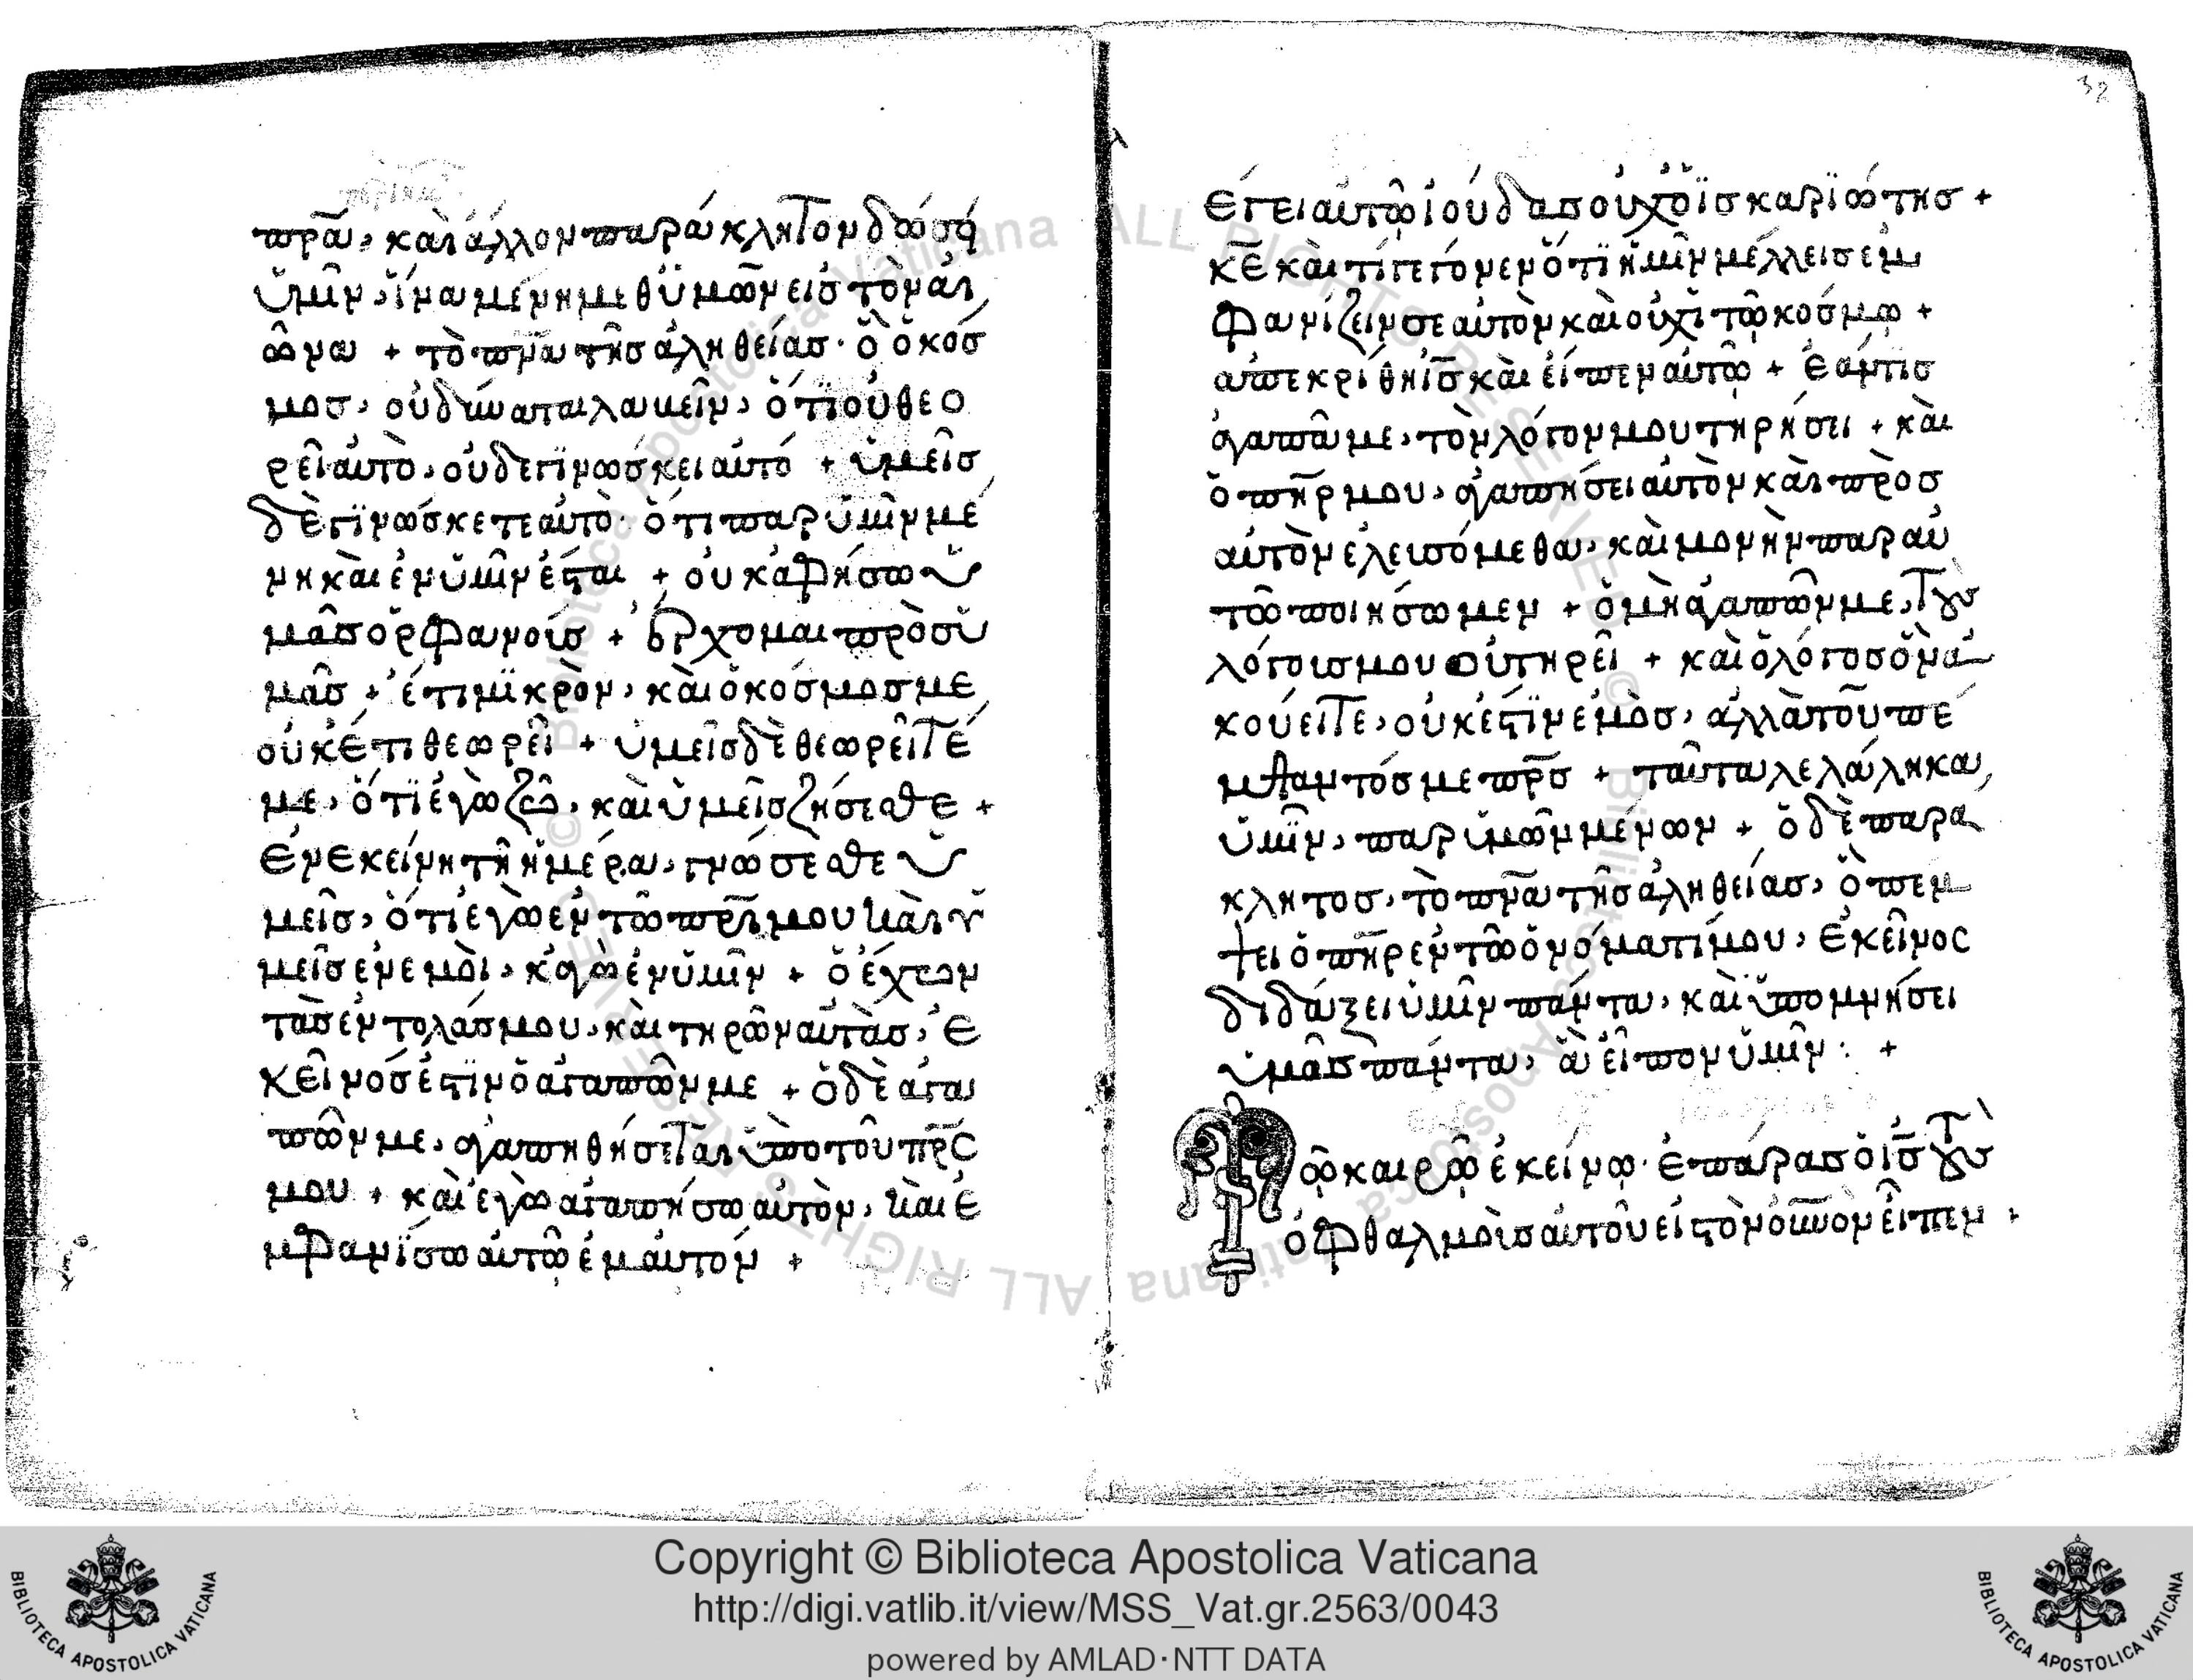 πρ̅α, καὶ ἄλλον παράκλητον δώσει
ὑμῖν, ἵνα μένη μεθ ὑμῶν εἰς τὸν αἰ
ῶνα + τὸ πν̅α τῆς ἀληθείας· ὃ ὁ κόσ
μος, οὐ δύναται λαβεῖν, ὅτι οὐ θεο
ρεῖ αὐτὸ, οὐδὲ γινώσκει αὐτό + ὑμεῖς
δὲ γινώσκετε αὐτὸ· ὅτι παρ ὑμῖν μέ
νη καὶ ἐν ὑμῖν ἔσται + οὐκ ἀφήσω ὑ
μᾶς ὀρφανούς + ἔρχομαι πρὸς ὑ
μᾶς + ἔτι μικρὸν, καὶ ὁ κόσμος με
οὐκέτι θεωρεῖ + ὑμεῖς δὲ θεωρεῖτέ
με, ὅτι ἐγὼ ζῶ, καὶ ὑμεῖς ζήσεσθε +
Ἐν εκείνη τῆ ἡμέρα, γνώσεσθε ὑ
μεῖς, ὅτι ἐγὼ ἐν τῶ πρ̅ι μου καὶ ὑ
μεῖς ἐν εμοὶ, κἀγὼ ἐν ὑμῖν + ὁ ἔχων
τὰς ἐντολάς μου, καὶ τηρῶν αὐτὰς, ἐ
κεῖνός ἐστιν ὁ ἀγαπῶν με + ὁ δὲ ἀγα
πῶν με, ἀγαπηθήσεται ὑπο τοῦ πρ̅ς
μου + καὶ ἐγὼ ἀγαπήσω αὐτὸν, καὶ ἐ
μφανίσω αὐτῶ ἐμαυτόν +
32
Λέγει αὐτῶ ἰούδας οὐχ ὁ ἰσκαριώτης +
κ̅ε καὶ τί γέγονεν ὅτι ἡμῖν μέλλεις ἐμ
φανίζειν σεαυτὸν καὶ οὐχὶ τῶ κόσμω +
ἀπεκρίθη ι̅ς καὶ εἶπεν αὐτῶ + ἐάν τις
ἀγαπᾶ με, τὸν λόγον μου τηρήσει + καὶ
ὁ πη̅ρ μου, ἀγαπήσει αὐτὸν καὶ πρὸς
αὐτὸν ἐλευσόμεθα, καὶ μονὴν παρ αὐ
τῶ ποιήσωμεν + ὁ μὴ ἀγαπῶν με, τοὺς
λόγους μου οὐ τηρεῖ + καὶ ὁ λόγος ὃν ἀ
κούετε, οὐκ ἔστιν ἐμὸς, ἀλλὰ τοῦ πέ
μψαντός με πρ̅ς + ταῦτα λελάληκα
ὑμῖν, παρ ὑμῶν μένων + ὁ δὲ παρα
κλητος, τὸ πν̅α τῆς ἀληθείας, ὃ πεμ
ψει ὁ πη̅ρ ἐν τῶ ὀνόματί μου, ἐκεῖνος
διδάξει ὑμῖν πάντα, καὶ ὑπομνήσει
ὑμᾶς πάντα, ἃ εἶπον ὑμῖν : +
Τῶ καιρῶ ἐκείνω· ἐπάρας ὁ ι̅ς τοὺς
ὀφθαλμοὺς αὐτοῦ εἰς τὸν οὐ̅νον εἶπεν ·
Copyright © Biblioteca Apostolica Vaticana
http://digi.vatlib.it/view/MSS_Vat.gr.2563/0043
powered by AMLAD·NTT DATA
BIBLIOTECA APOSTOLICA VATICANA
BIBLIOTECA APOSTOLICA VATICANA